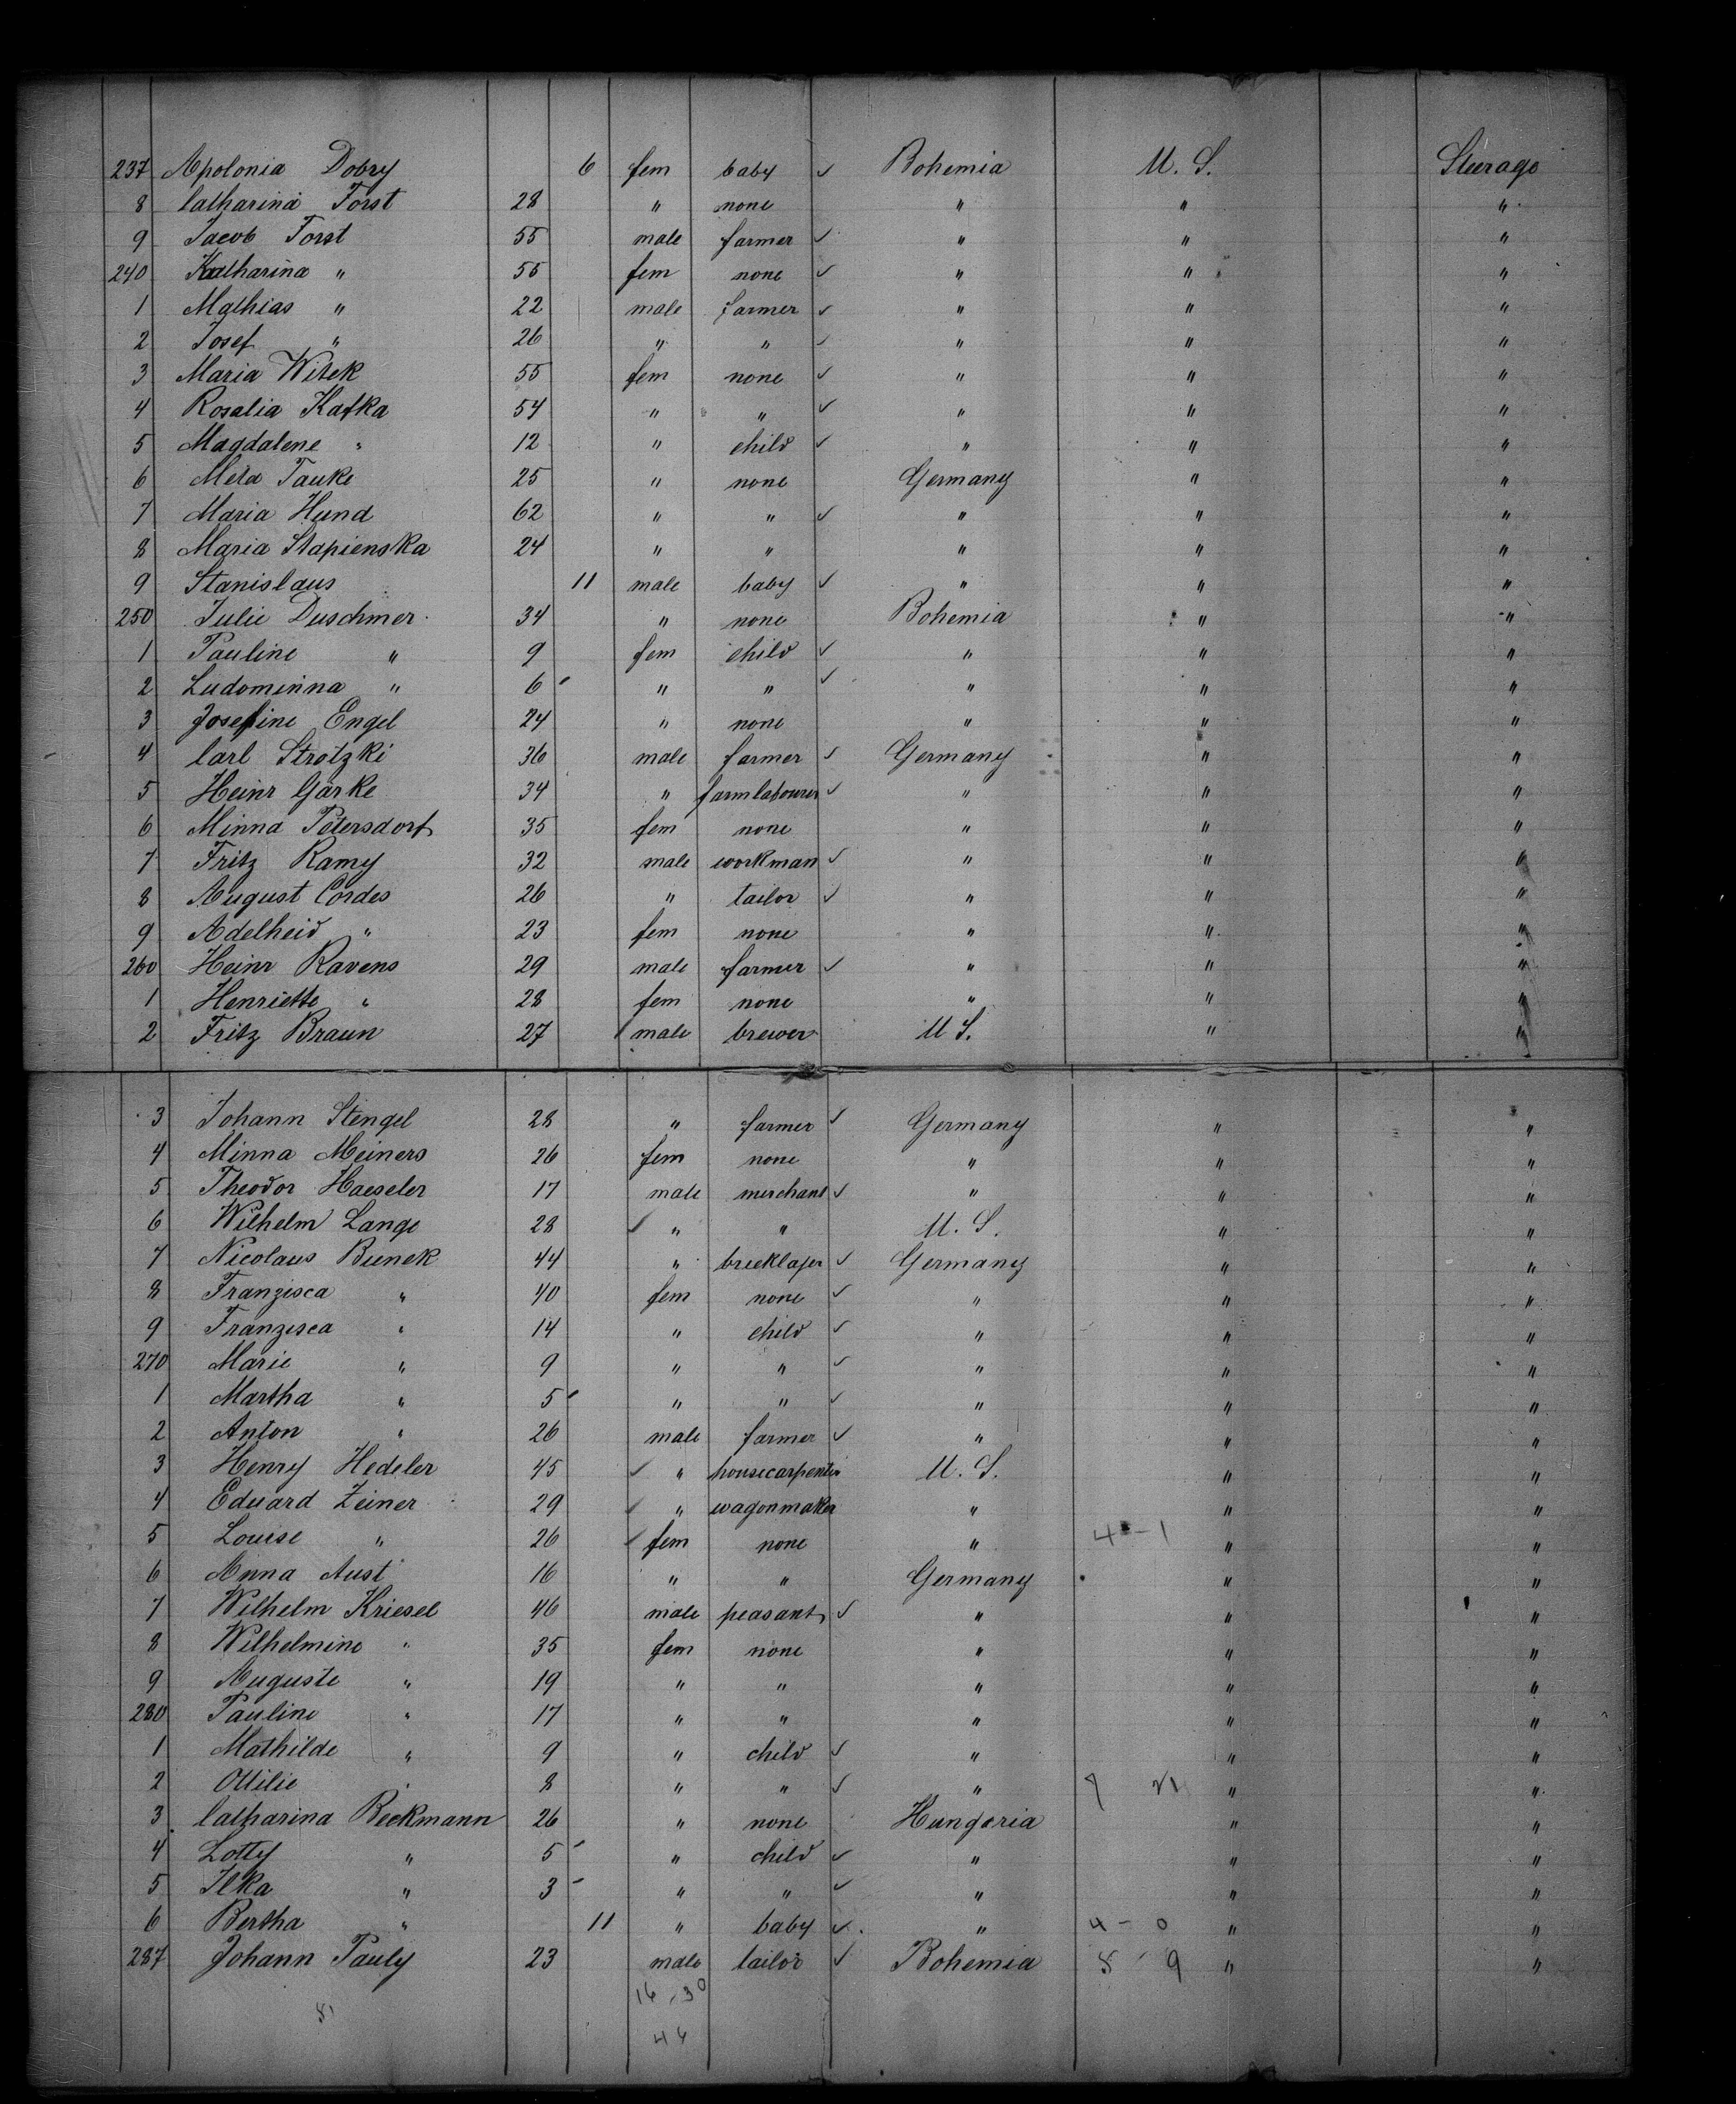 237 Apolonia Dobry 6 fem baby ✓ Bohemia U. S. Steerage
8 Catharina Forst 28 " none " " "
9 Jacob Forst 55 male farmer ✓ " " "
240 Katharina " 55 fem none ✓ " " "
1 Mathias " 22 male farmer ✓ " " "
2 Josef " 26 " " ✓ " " "
3 Maria Witek 55 fem none ✓ " " "
4 Rosalia Kafka 54 " " ✓ " " "
5 Magdalene " 12 " child ✓ " " "
6 Meta Tauke 25 " none Germany " "
7 Maria Hund 62 " " ✓ " " "
8 Maria Stapienska 24 " " " " "
9 Stanislaus 11 male baby ✓ " " "
250 Julie Duschmer 34 " none Bohemia " "
1 Pauline " 9 fem child ✓ " " "
2 Ludominna " 6 " " ✓ " " "
3 Josefine Engel 24 " none " " "
4 Carl Strotzki 36 male farmer ✓ Germany " "
5 Heinr Gärke 34 " farmlabourer ✓ " " "
6 Minna Petersdorf 35 fem none " " "
7 Fritz Ramy 32 male workman ✓ " " "
8 August Cordes 26 " tailor ✓ " " "
9 Adelheid " 23 fem none " " "
260 Heinr Ravens 29 male farmer ✓ " " "
1 Henriette " 28 fem none " " "
2 Fritz Braun 27 male brewer U S. " "
3 Johann Stengel 28 " farmer ✓ Germany " "
4 Minna Meiners 26 fem none " " "
5 Theodor Haeseler 17 male merchant ✓ " " "
6 Wilhelm Lange 28 ✓ " " U. S. " "
7 Nicolaus Bunek 44 " bricklajer ✓ Germany " "
8 Franzisca " 40 fem none ✓ " " "
9 Franzisca " 14 " child ✓ " " "
270 Marie " 9 " " ✓ " " "
1 Martha " 5 " " ✓ " " "
2 Anton " 26 male farmer ✓ " " "
3 Henry Hedeler 45 ✓ " housecarpenter U. S. " "
4 Eduard Zeiner 29 " wagonmaker " " "
5 Louise " 26 fem none " 4 - 1 " "
6 Anna Aust 16 " " Germany " "
7 Wilhelm Kriesel 46 male peasant ✓ " " "
8 Wilhelmine " 35 fem none " " "
9 Auguste " 19 " " " " "
280 Pauline " 17 " " " " "
1 Mathilde " 9 " child ✓ " " "
2 Ottilie " 8 " " ✓ " " "
3 Catharina Beckmann 26 " none Hungaria " "
4 Lotty " 5 " child ✓ " " "
5 Ilka " 3 " " ✓ " " "
6 Bertha " 11 " baby ✓ " 4 - 0 " "
287 Johann Pauly 23 male tailor ✓ Bohemia 5 - 9 " "
16 - 30